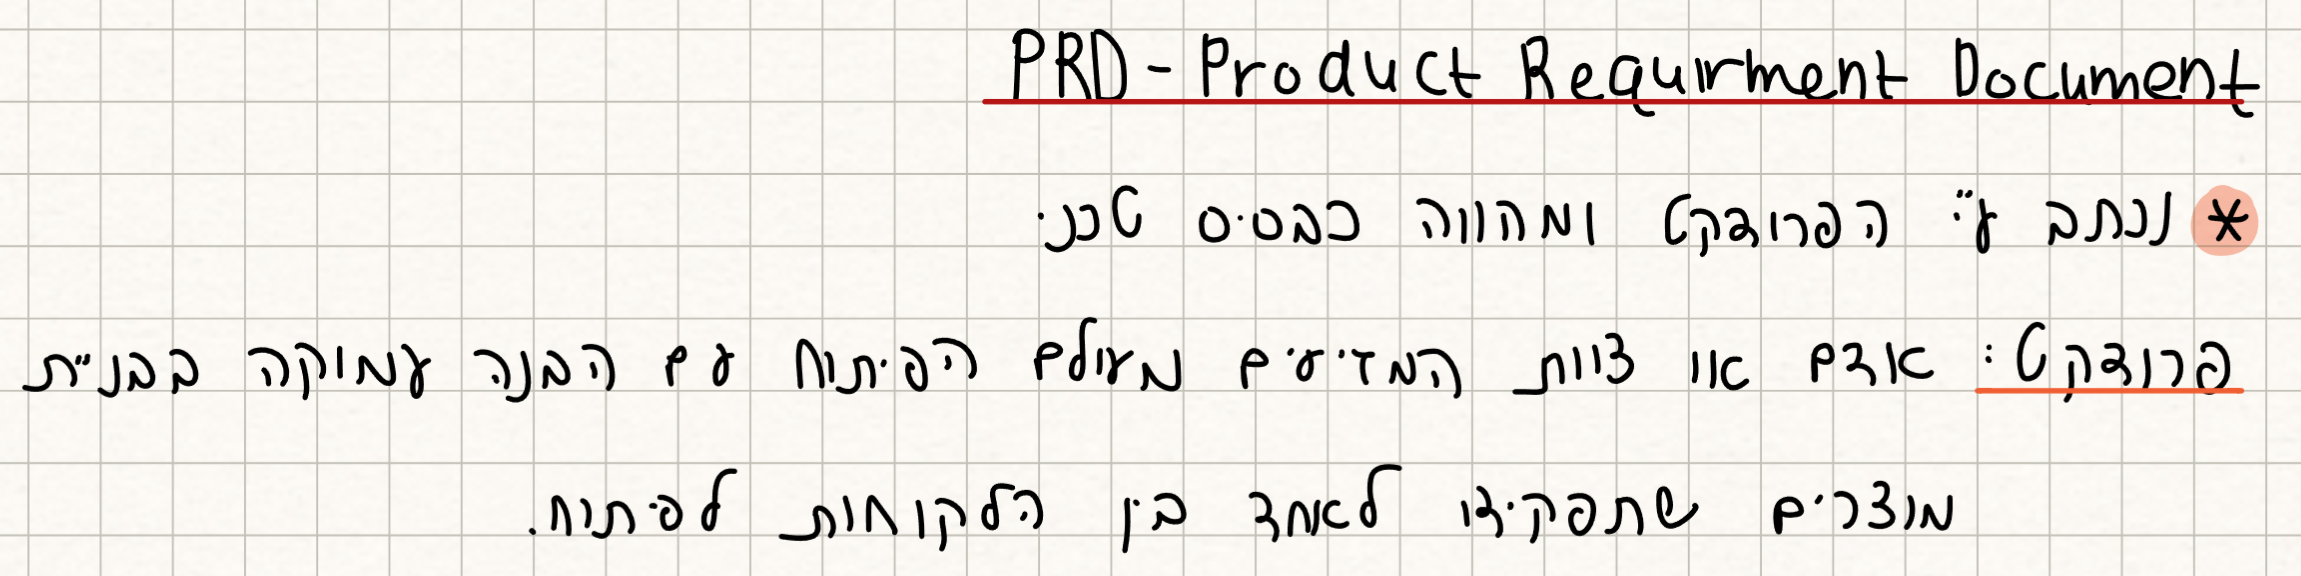 PRD - Product Requirment Document
* נכתב ע"י הפרודקט ומהווה כבסיס טכני
פרודקט: אדם או צוות המגיעים מעולם הפיתוח עם הבנה עמוקה בבניית
מוצרים שתפקידו לאחד בין הלקוחות לפיתוח.